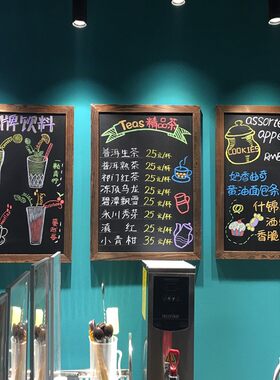 牌饮料
Teas 精品茶
普洱生茶 25元/杯
普洱熟茶 25元/杯
祁门红茶 25元/杯
冻顶乌龙 25元/杯
碧潭飘雪 25元/杯
永川秀芽 25元/杯
滇红 25元/杯
小青柑 35元/杯
assorte
appe
COOKIES
RMB
奶香曲奇
黄油面包条
什锦
洒
香脆